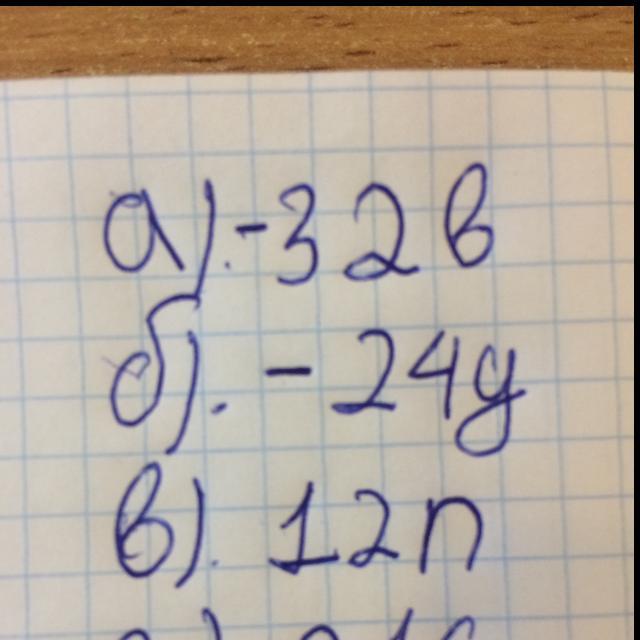 а). -32в
б). -24y
в). 12n